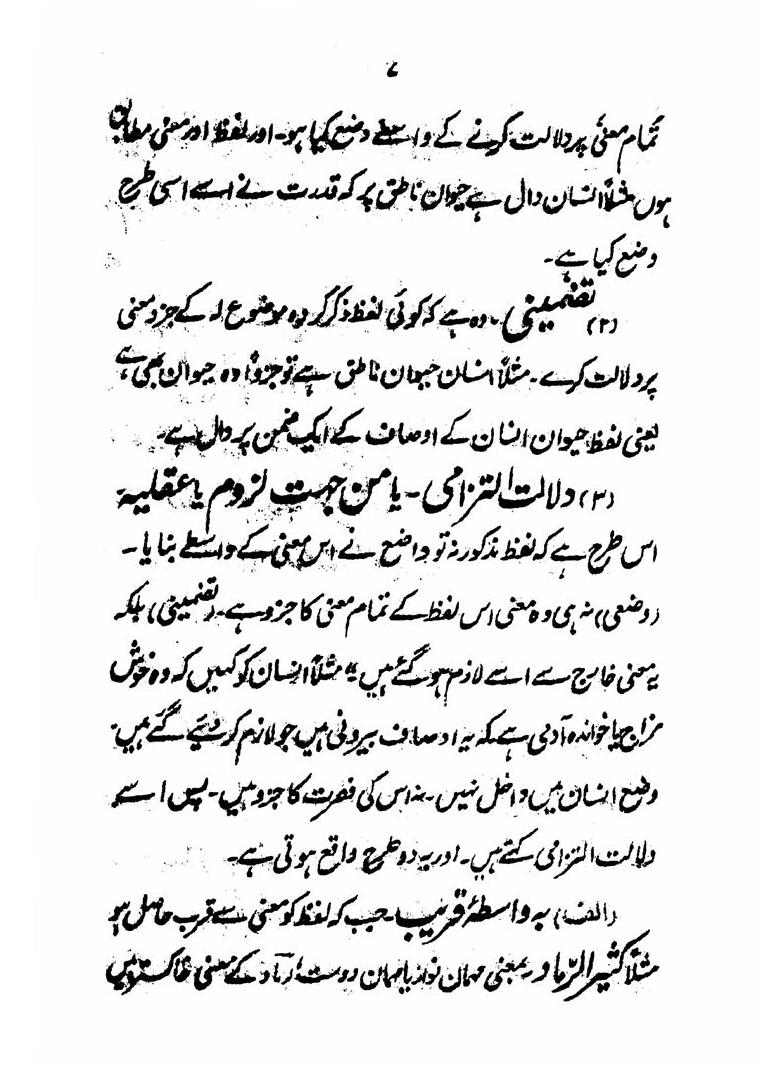 ۷
تمام معنی پر دلالت کرنے کے واسطے وضع کیا ہو۔ اور لفظ اور معنی مطابق
ہوں مثلاً انسان دال ہے حیوان ناطق پر کہ قدرت نے اسے اسی طرح
وضع کیا ہے۔
(۲) تضمینی۔ وہ ہے کہ کوئی لفظ ذکر کردہ موضوع لہ کے جزو معنی
پر دلالت کرے۔ مثلاً انسان حیوان ناطق ہے تو جزواً وہ حیوان بھی ہے
یعنی لفظ حیوان انسان کے اوصاف کے ایک ضمن پر دال ہے۔
(۳) دلالت التزامی۔ یا من جہت لزوم یا عقلیہ
اس طرح ہے کہ لفظ مذکور نہ تو واضع نے اس معنی کے واسطے بنایا۔
(وضعی) نہ ہی وہ معنی اس لفظ کے تمام معنی کا جزو ہے۔ (تضمینی) بلکہ
یہ معنی خارج سے اسے لازم ہو گئے ہیں" مثلاً انسان کو کہیں کہ وہ خوش
مزاج یا خواندہ آدمی ہے کہ یہ اوصاف بیرونی ہیں جو لازم کر دیئے گئے ہیں۔
وضع انسان میں داخل نہیں۔ نہ اس کی فطرت کا جزو ہیں۔ پس اسے
دلالت التزامی کہتے ہیں۔ اور یہ دو طرح واقع ہوتی ہے۔
(الف) بہ واسطۂ قریب۔ جب کہ لفظ کو معنی سے قرب حاصل ہو
مثلاً کثیر الرّماد۔ بمعنی مہمان نواز یا مہمان دوست رماد کے معنی خاکستر ہیں